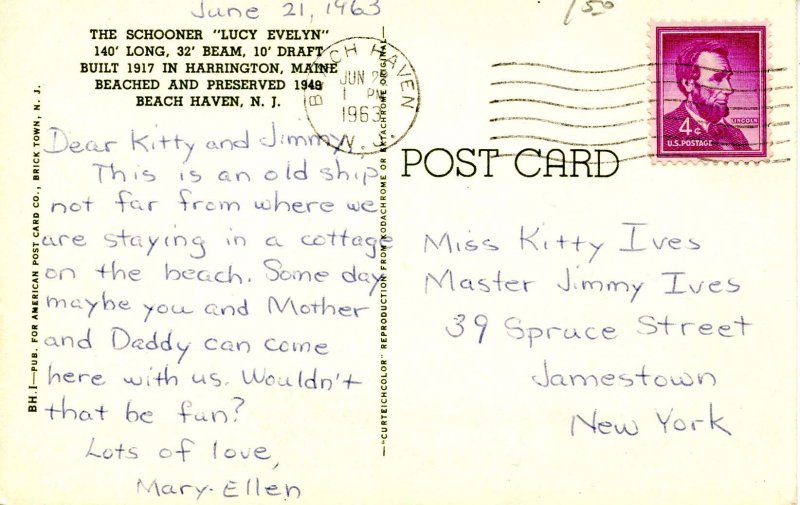 June 21, 1963
150
THE SCHOONER "LUCY EVELYN"
140' LONG, 32' BEAM, 10' DRAFT
BUILT 1917 IN HARRINGTON, MAINE
BEACHED AND PRESERVED 1949
BEACH HAVEN, N. J.
BEACH HAVEN
JUN 2
1 PM
1963
N. J.
LINCOLN
4¢
U.S. POSTAGE
POST CARD
Dear Kitty and Jimmy,
This is an old ship
not far from where we
are staying in a cottage
on the beach. Some day
maybe you and Mother
and Daddy can come
here with us. Wouldn't
that be fun?
Lots of love,
Mary-Ellen
Miss Kitty Ives
Master Jimmy Ives
39 Spruce Street
Jamestown
New York
BH.1—PUB. FOR AMERICAN POST CARD CO., BRICK TOWN, N. J.
—"CURTEICHCOLOR" REPRODUCTION FROM KODACHROME OR EKTACHROME ORIGINAL—